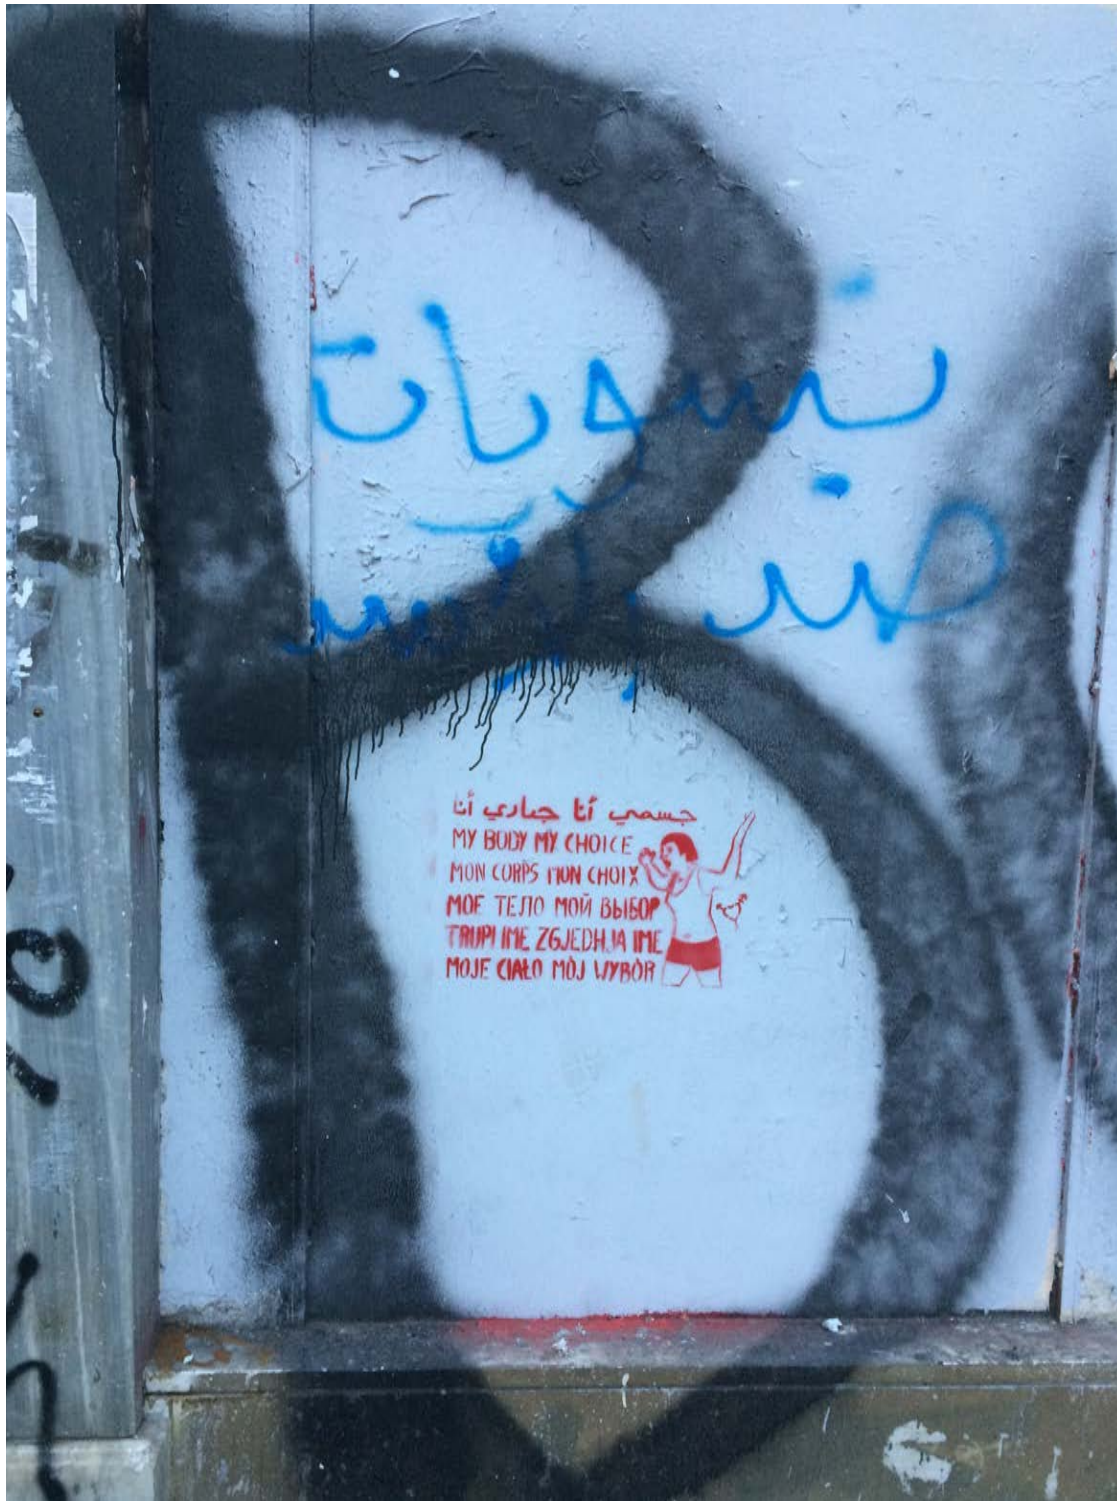 نسويات
ضد
جسمي أنا خياري أنا
MY BODY MY CHOICE
MON CORPS MON CHOIX
МОЕ ТЕЛО МОЙ ВЫБОР
TRUPI IME ZGJEDHJA IME
MOJE CIAŁO MÓJ WYBÓR